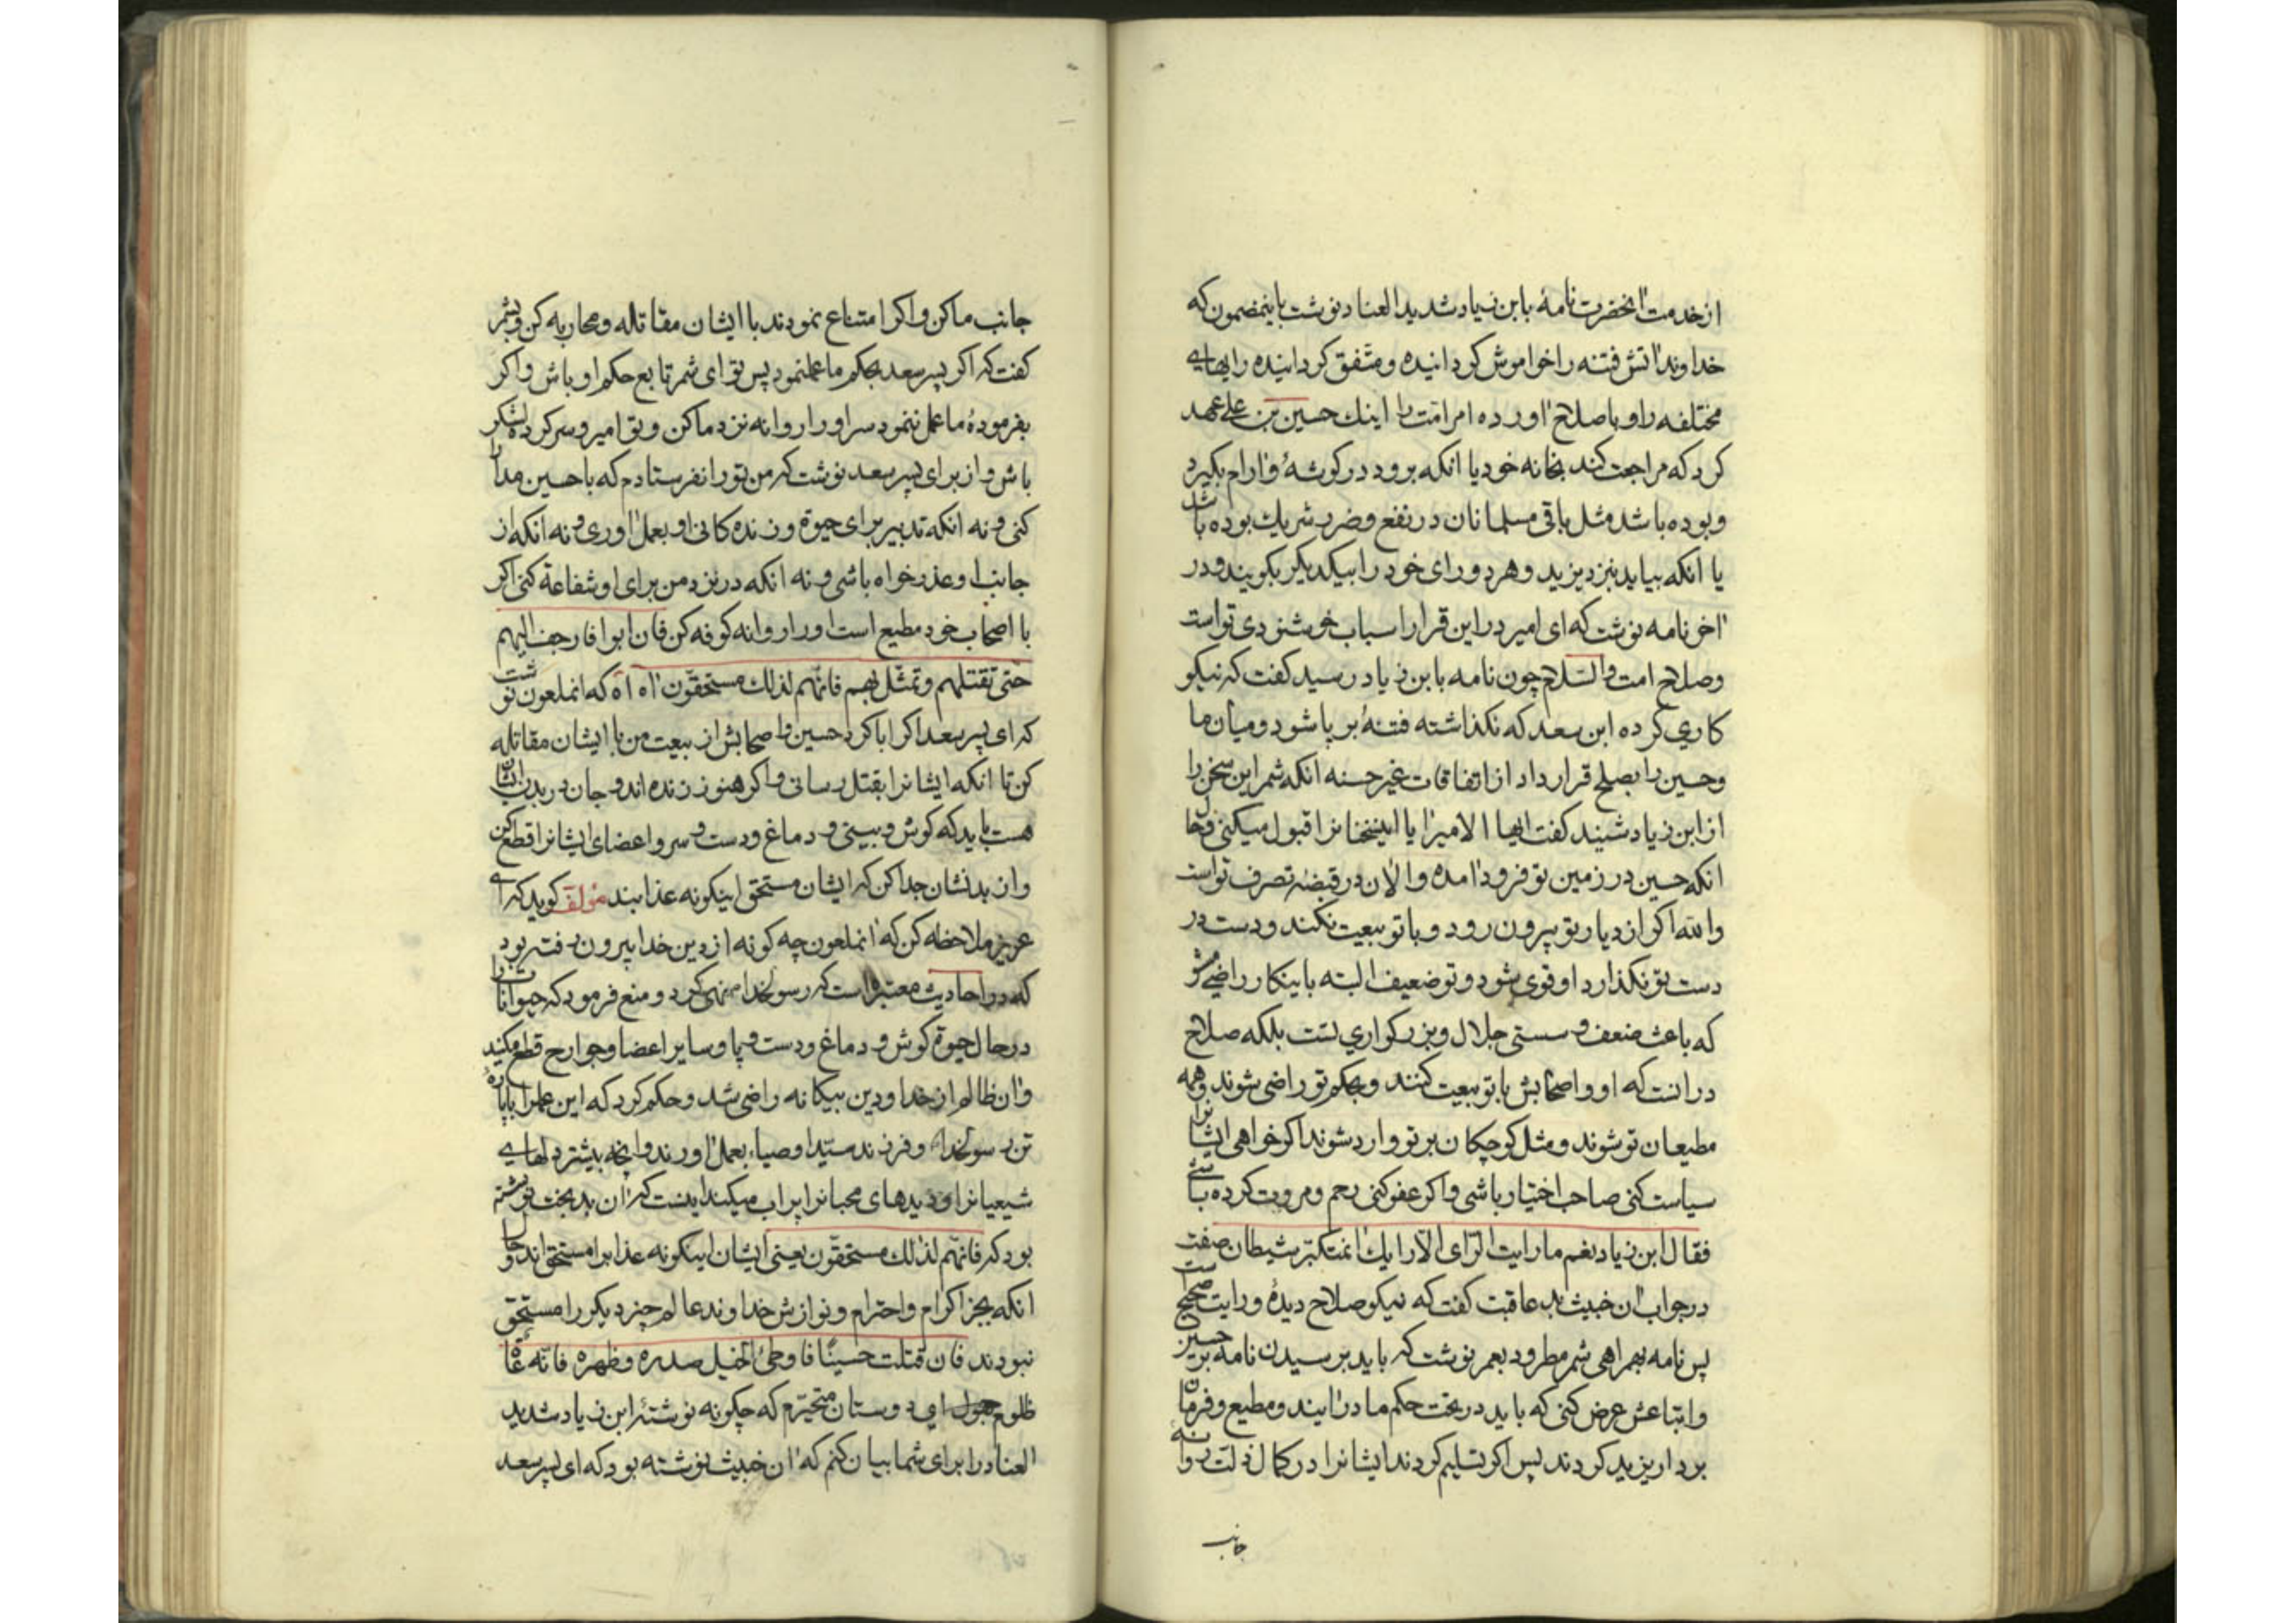 از خدمت آنحضرت نامهٔ بابن زیاد شدید العناد نوشت باینمضمون که
خداوند آتش فتنه را خواموش کردانیده و متّفق کردانیده رایهای
مختلفه را و باصلاح آورده امر امّت را اینك حسین بن علی عهد
کرد که مراجعت کند بخانه خود یا انکه برود در کوشهٔ و آرام بکیرد
و بوده باشد مثل باقی مسلمانان در نفع و ضرر شریك بوده باشد
یا انکه بیاید بنزد یزید و هر دو رای خود را بیکدیکر بکویند و در
آخر نامه نوشت که ای امیر در این قرار اسباب خوشنودی تو است
و صلاح امت والسّلام چون نامه بابن زیاد رسید کفت که نیکو
کاری کرده ابن سعد که نکذاشته فتنهٔ بر پا شود و میان ما
و حسین را بصلح قرار داد از اتفاقات غیر حسنه انکه شمر این سخن را
از ابن زیاد شنید کفت ایها الامیر آیا اینسخنانرا قبول میکنی و حال
انکه حسین در زمین تو فرود آمده و الآن در قبضهٔ تصرف تو است
والله اکر از دیار تو بیرون رود و با تو بیعت نکند و دست در
دست تو نکذارد او قوی شود و تو ضعیف البته باینکار راضی مشو
که باعث ضعف و سستی جلال و بزرکواری تست بلکه صلاح
در انست که او و اصحابش با تو بیعت کنند و بحکم تو راضی شوند و همه
مطیعان تو شوند و مثل کوچکان بر تو وارد شوند اکر خواهی ایشانرا
سیاست کنی صاحب اختیار باشی و اکر عفو کنی رحم و مروت کرده باشی
فقال ابن زیاد نعم ما رایت الرّای الّا رایك آنمتکبّر شیطان صفت
در جواب آن خبیث بد عاقبت کفت که نیکو صلاح دیدهٔ و رایت صحیح است
پس نامه بهمراهی شمر مطرود بعمر نوشت که باید برسیدن نامه بر حسین
و اتباعش عرض کنی که باید در تحت حکم ما درآیند و مطیع و فرمان
بردار یزید کردند پس اکر تسلیم کردند ایشانرا در کمال ذلت روانه
جانب
جانب ما کن و اکر امتناع نمودند با ایشان مقاتله و محاربه کن و بشمر
کفت که اکر پسر سعد بحکم ما عملنمود پس تو ای شمر تابع حکم او باش و اکر
بفرمودهٔ ما عمل ننمود سر او را روانه نزد ما کن و تو امیر و سرکرده لشکر
باش و از برای پسر سعد نوشت که من تو را نفرستادم که با حسین مدارا
کنی و نه انکه تدبیر برای حیوة و زنده کانی او بعمل آوری و نه انکه از
جانب او عذر خواه باشی و نه انکه در نزد من برای او شفاعة کنی اکر
با اصحاب خود مطیع است او را روانه کوفه کن فان ابوا فازحف الیهم
حتّی تقتلهم و تمثّل بهم فانّهم لذلك مستحقّون آه آه که انملعون نوشت
که ای پسر سعد اکر ابا کرد حسین و اصحابش از بیعت من با ایشان مقاتله
کن تا انکه ایشانرا بقتل رسانی و اکر هنوز زنده اند و جان در بدن ایشان
هست باید که کوش و بینی و دماغ و دست و سر و اعضای ایشانرا قطع کن
و از بدنشان جدا کن که ایشان مستحق اینکونه عذابند مؤلف کوید که ای
عزیز ملاحظه کن که آنملعون چه کونه از دین خدا بیرون رفته بود
که در احادیث معتبره است که رسولخدا نهی کرد و منع فرمود که حیوانات را
در حال حیوة کوش و دماغ و دست و پا و سایر اعضا و جوارح قطع مکنید
و آن ظالم از خدا و دین بیکانه راضی شد و حکم کرد که این عمل را با پاره
تن رسولخدا و فرزند سیّد اوصیاء بعمل آورند و آنچه بیشتر دلهای
شیعیانرا و دیدهای محبانرا پر آب میکند اینست که آن بد بخت نوشته
بود که فانهّم لذلك مستحقّون یعنی ایشان اینکونه عذابرا مستحق اند و حال
انکه بجز اکرام و احترام و نوازش خداوند عالم چیز دیکر را مستحق
نبودند فان قتلت حسینًا فاوطئ الخیل صدره و ظهره فانّه عاق
ظلوم ای دوستان متحیّرم که چکونه نوشتهٔ ابن زیاد شدید
العناد را برای شما بیان کنم که آن خبیث نوشته بود که ای پسر سعد